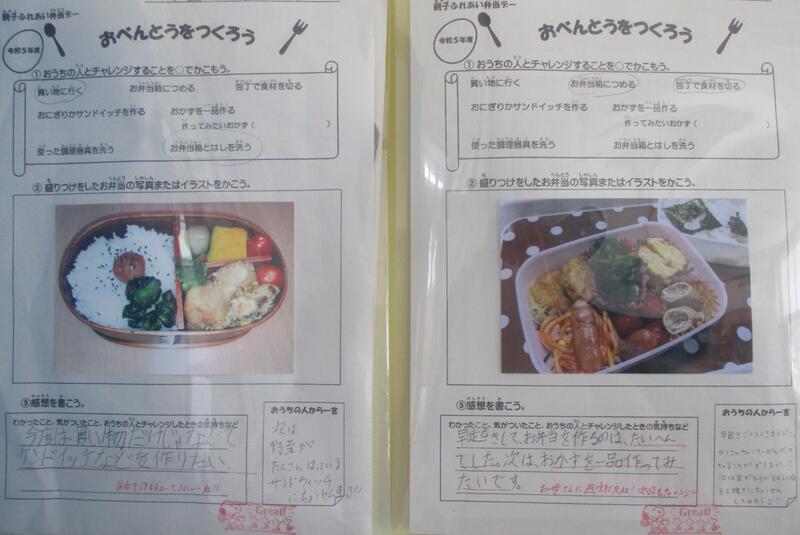 親子ふれあい弁当デー
令和5年度
おべんとうをつくろう
①おうちの人とチャレンジすることを○でかこもう。
買い物に行く お弁当箱につめる 包丁で食材を切る
おにぎりかサンドイッチを作る おかずを一品作る
作ってみたいおかず( )
使った調理器具を洗う お弁当箱とはしを洗う
②盛りつけをしたお弁当の写真またはイラストをかこう。
③感想を書こう。
わかったこと、気がついたこと、おうちの人とチャレンジしたときの気持ちなど
今度は買い物だけじゃなくて
サンドイッチなどを作りたい
おうちの人から一言
次は
野菜が
たくさんはいっている
サンドウィッチ
にちょうせんする!!
Great!
親子ふれあい弁当デー
令和5年度
おべんとうをつくろう
①おうちの人とチャレンジすることを○でかこもう。
買い物に行く お弁当箱につめる 包丁で食材を切る
おにぎりかサンドイッチを作る おかずを一品作る
作ってみたいおかず( )
使った調理器具を洗う お弁当箱とはしを洗う
②盛りつけをしたお弁当の写真またはイラストをかこう。
③感想を書こう。
わかったこと、気がついたこと、おうちの人とチャレンジしたときの気持ちなど
早起きして、お弁当を作るのは、たいへん
でした。次は、おかずを一品作ってみ
たいです。
おうちの人から一言
Great!